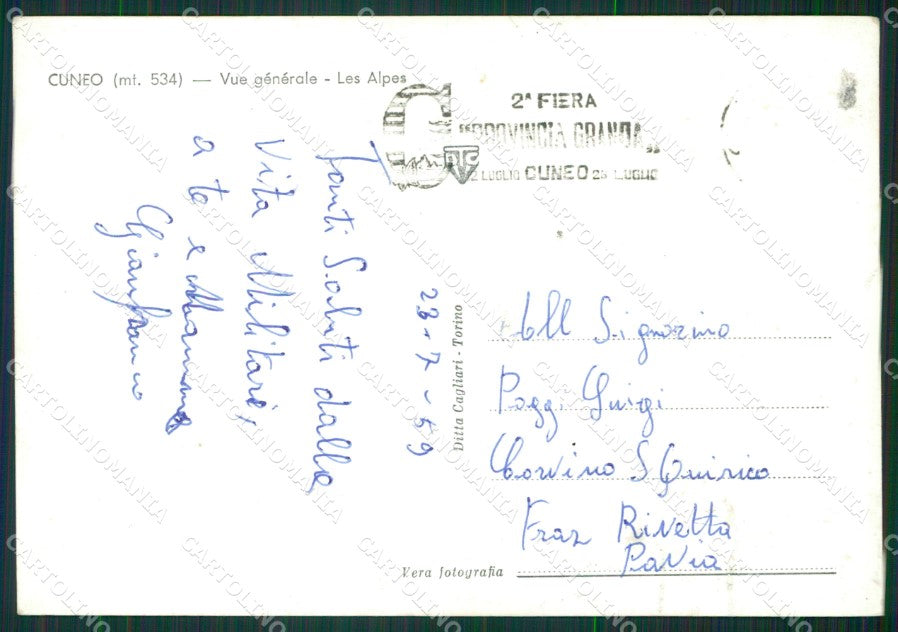 CUNEO (mt. 534) — Vue générale - Les Alpes
2ª FIERA
"PROVINCIA GRANDA"
2 LUGLIO CUNEO 26 LUGLIO
23-7-59
Tanti Saluti dalla
Vita Militare,
a te e Mamma
Gianfranco
Ditta Cagliari - Torino
All Signorino
Poggi Luigi
Corvino S Quirico
Fraz Rivetta
Pavia
Vera fotografia
CARTOLINOMANIA